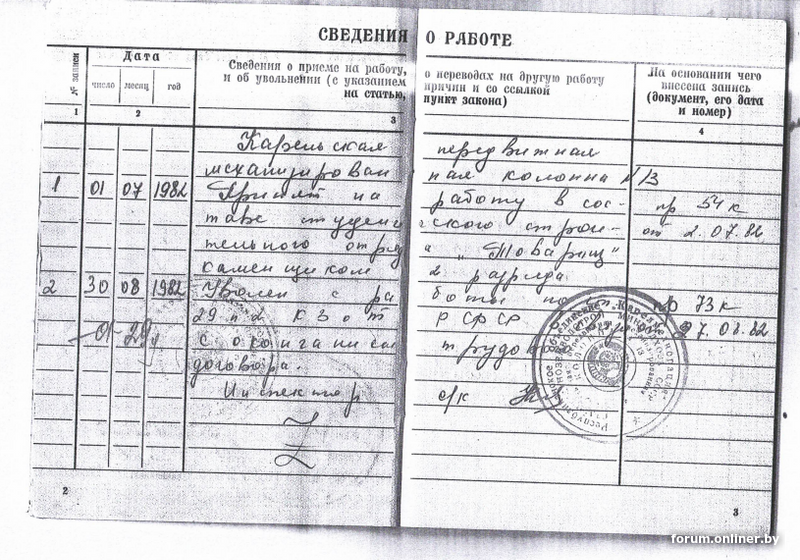 СВЕДЕНИЯ О РАБОТЕ
№ записи
Дата
число месяц год
Сведения о приеме на работу, о переводах на другую работу
и об увольнении (с указанием причин и со ссылкой
на статью, пункт закона)
На основании чего
внесена запись
(документ, его дата
и номер)
1 2 3 4
Карельская передвижная
механизирован ная колонна №13
1 01 07 1982 Принят на работу в сос- пр 54 к
таве студен ческого строи- от 2.07.82
тельного отряда „Товарищ"
каменщиком 2 разряда
2 30 08 1982 Уволен с работы по пр 73 к
29 п 2 КЗоТ РСФСР 27.08.82
с оконганием трудов
договора.
Инспектор о/к
2
3
forum.onliner.by